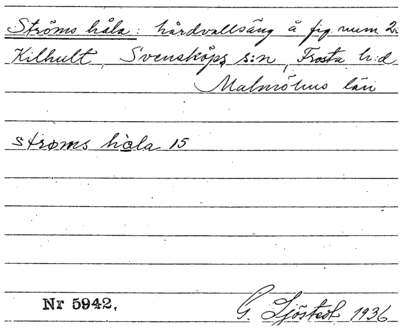 Ströms håla: hårdvallsäng å fig. num 2.
Kilhult, Svensköps s:n, Frosta h:d
Malmöhus län
stroms hola 15
Nr 5942.
G. Sjöstedt 1936